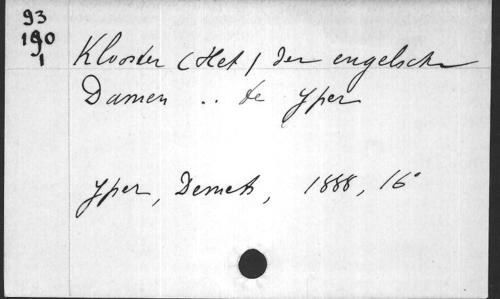 93
190
1
Klooster (Het) der engelsche
Damen .. te Yper
Yper, Demets, 1888, 16°